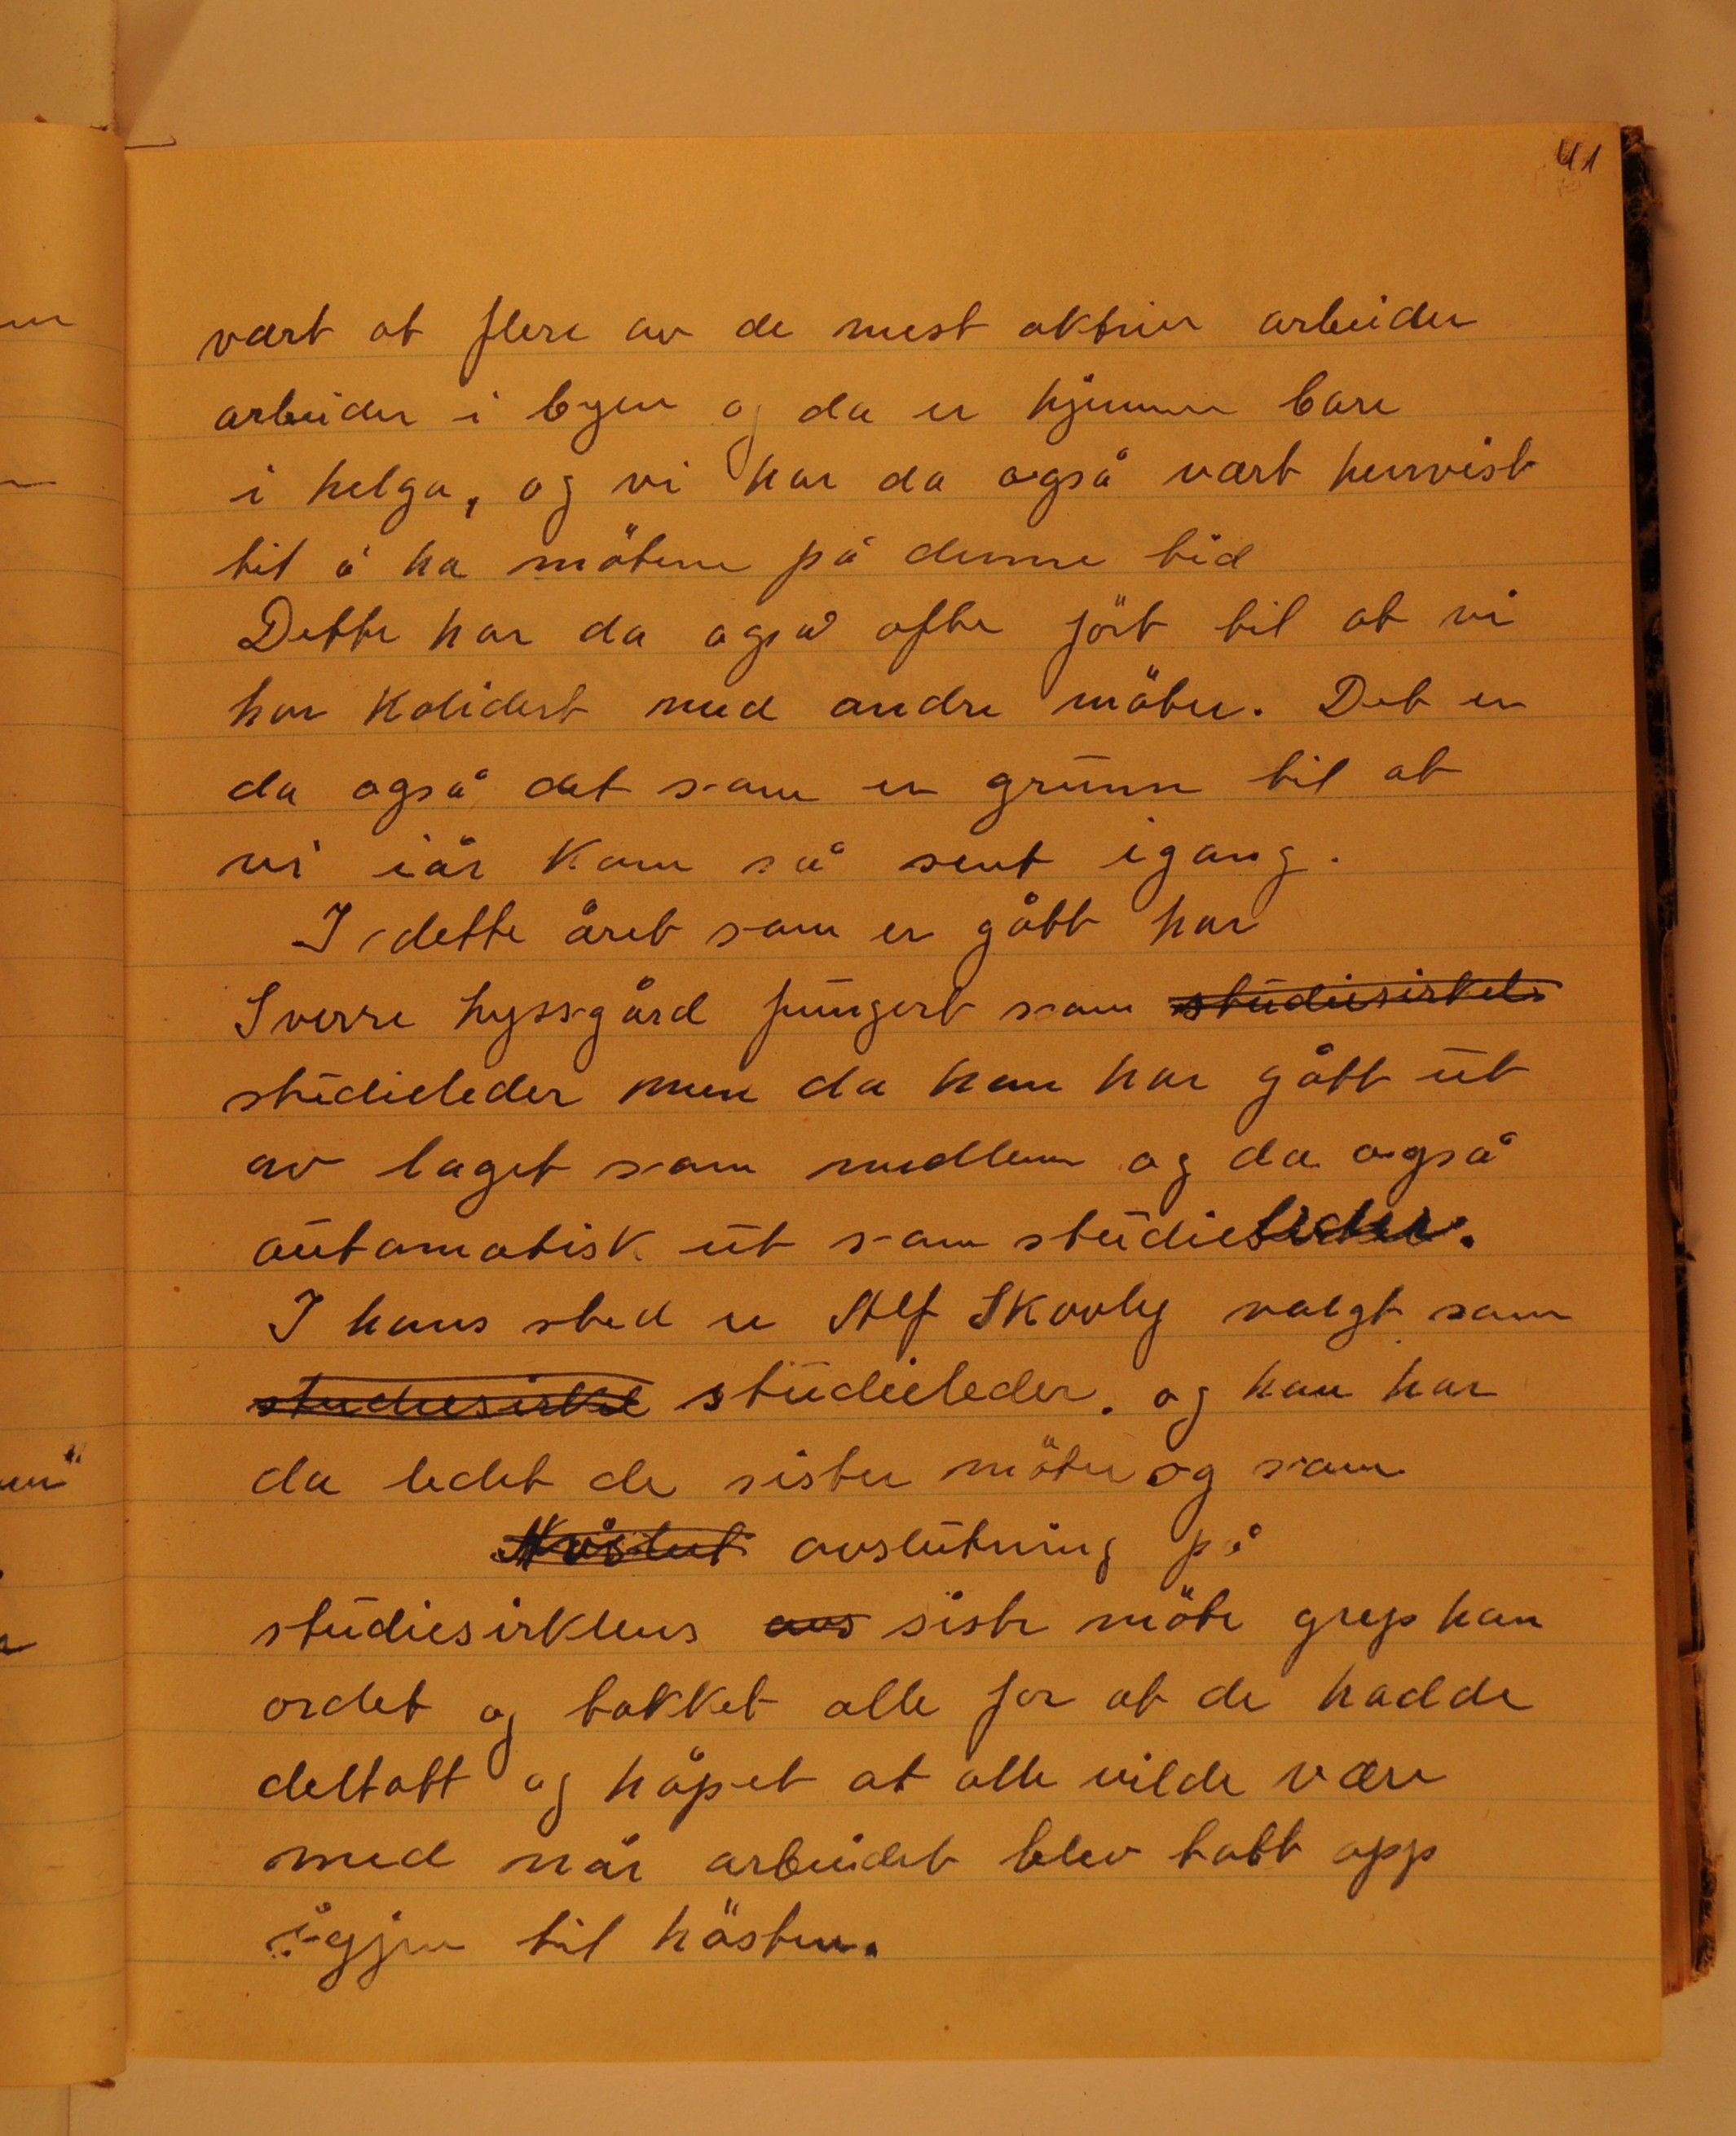 41
vært at flere av de mest aktive arbeider
arbeider i byen og da er hjemme bare
i helga, og vi har da også vært henvist
til å ha mötene på denne tid
Dette har da også ofte fört til at vi
har kolidert med andre möter. Det er
da også det som er grunn til at
vi iår kom så sent igang.
I dette året som er gått har
Sverre Lyssgård fungert som studiesirkels
studieleder men da han har gått ut
av laget som medlem og da også
automatisk ut som studieleder.
I hans sted er Alf Skovly valgt som
studiesirkel studieleder. og han har
da ledet de sister möter og som
avslutning på
studiesirklens avs siste möte grep han
ordet og takket alle for at de hadde
deltatt og håpet at alle vilde være
med når arbeidet blev tatt opp
igjen til hösten.